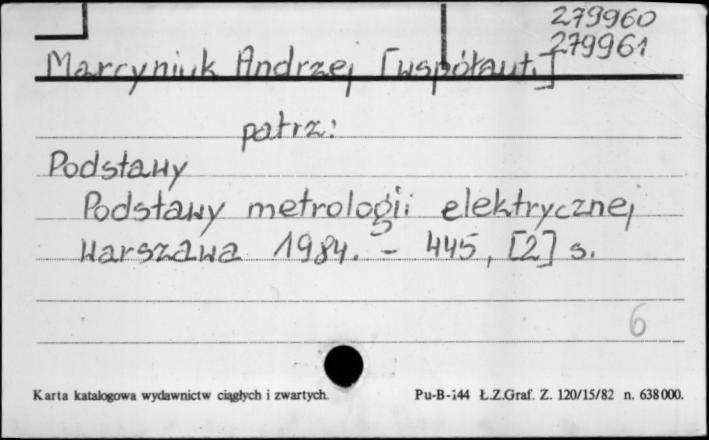 279960
279961
Marcyniuk Andrzej [współaut.]
patrz:
Podstawy
Podstawy metrologii elektrycznej
Warszawa 1984. - 445, [2] s.
6
Karta katalogowa wydawnictw ciągłych i zwartych.
Pu-B-144 Ł.Z.Graf. Z. 120/15/82 n. 638000.